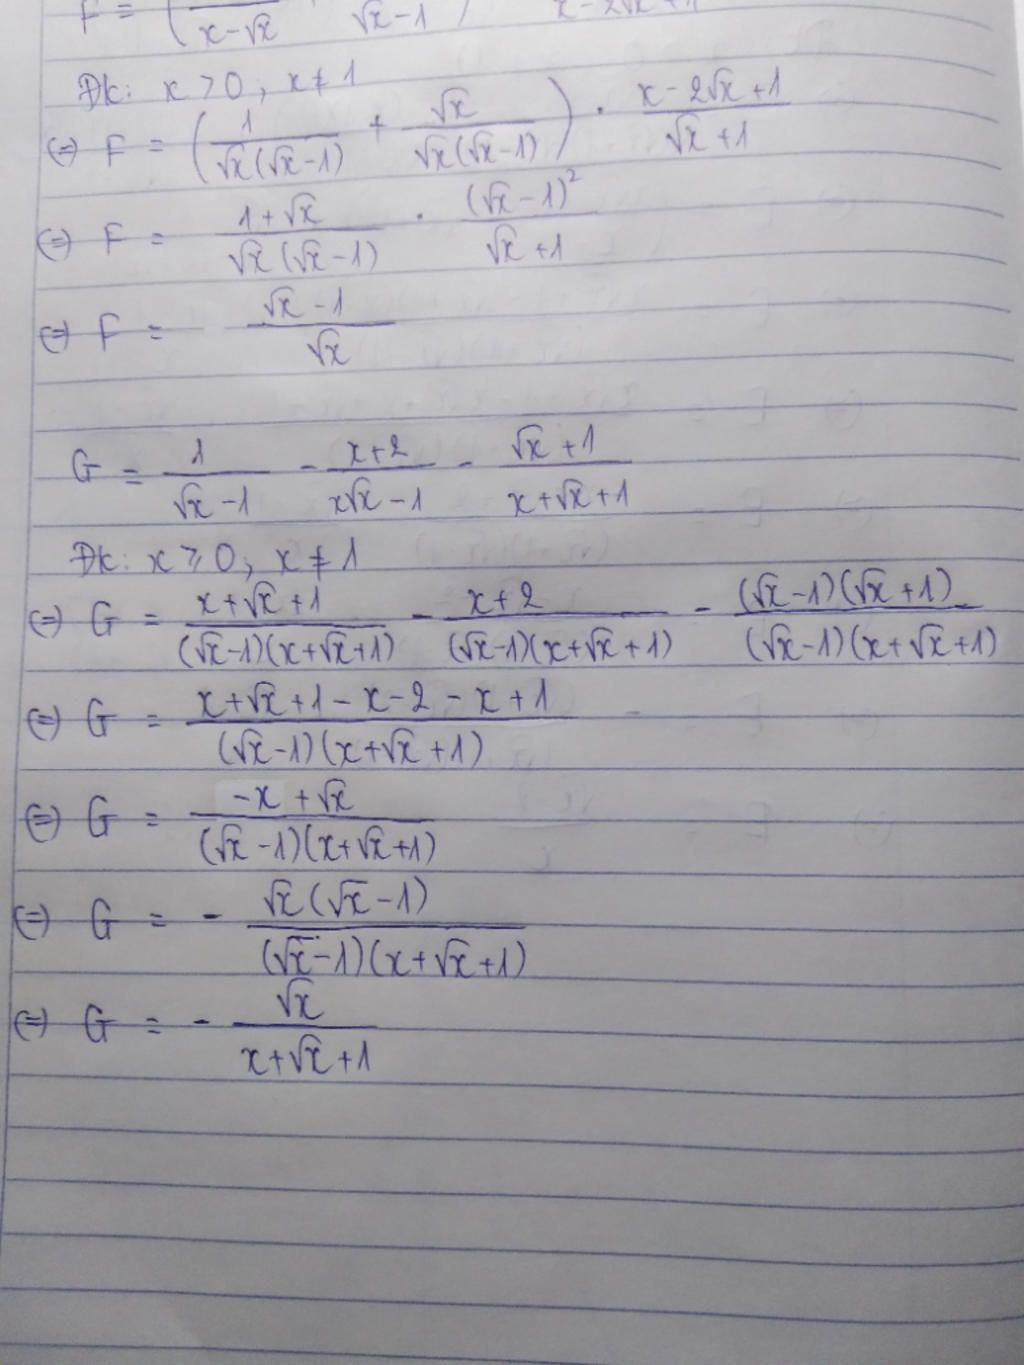 F = ( / x-√x √x-1 ) x-2√x+1
Đk: x > 0, x ≠ 1
(=) F = (1/√x(√x-1) + √x/√x(√x-1)) . x-2√x+1/√x+1
(=) F = 1+√x/√x(√x-1) . (√x-1)²/√x+1
(=) F = √x-1/√x
G = 1/√x-1 - x+2/x√x-1 - √x+1/x+√x+1
Đk: x ≥ 0, x ≠ 1
(=) G = x+√x+1/(√x-1)(x+√x+1) - x+2/(√x-1)(x+√x+1) - (√x-1)(√x+1)/(√x-1)(x+√x+1)
(=) G = x+√x+1-x-2-x+1/(√x-1)(x+√x+1)
(=) G = -x+√x/(√x-1)(x+√x+1)
(=) G = - √x(√x-1)/(√x-1)(x+√x+1)
(=) G = - √x/x+√x+1